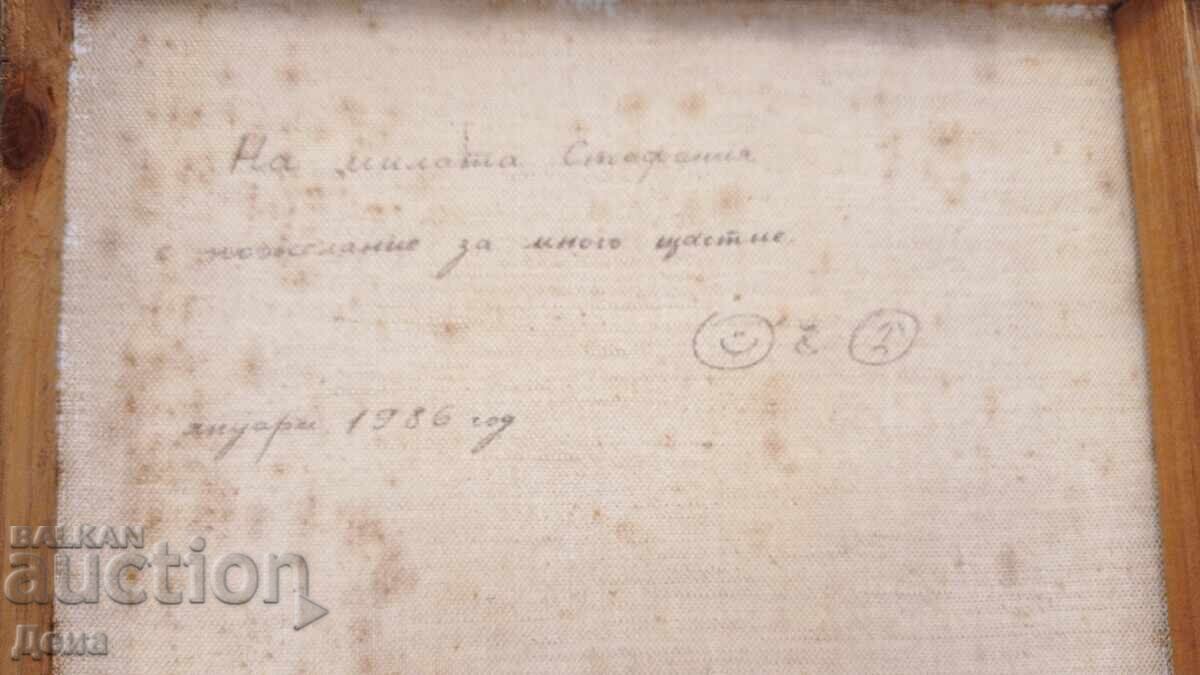 На милата Стефания
с пожелание за много щастие.
януари 1986 год
BALKAN
auction
Дема